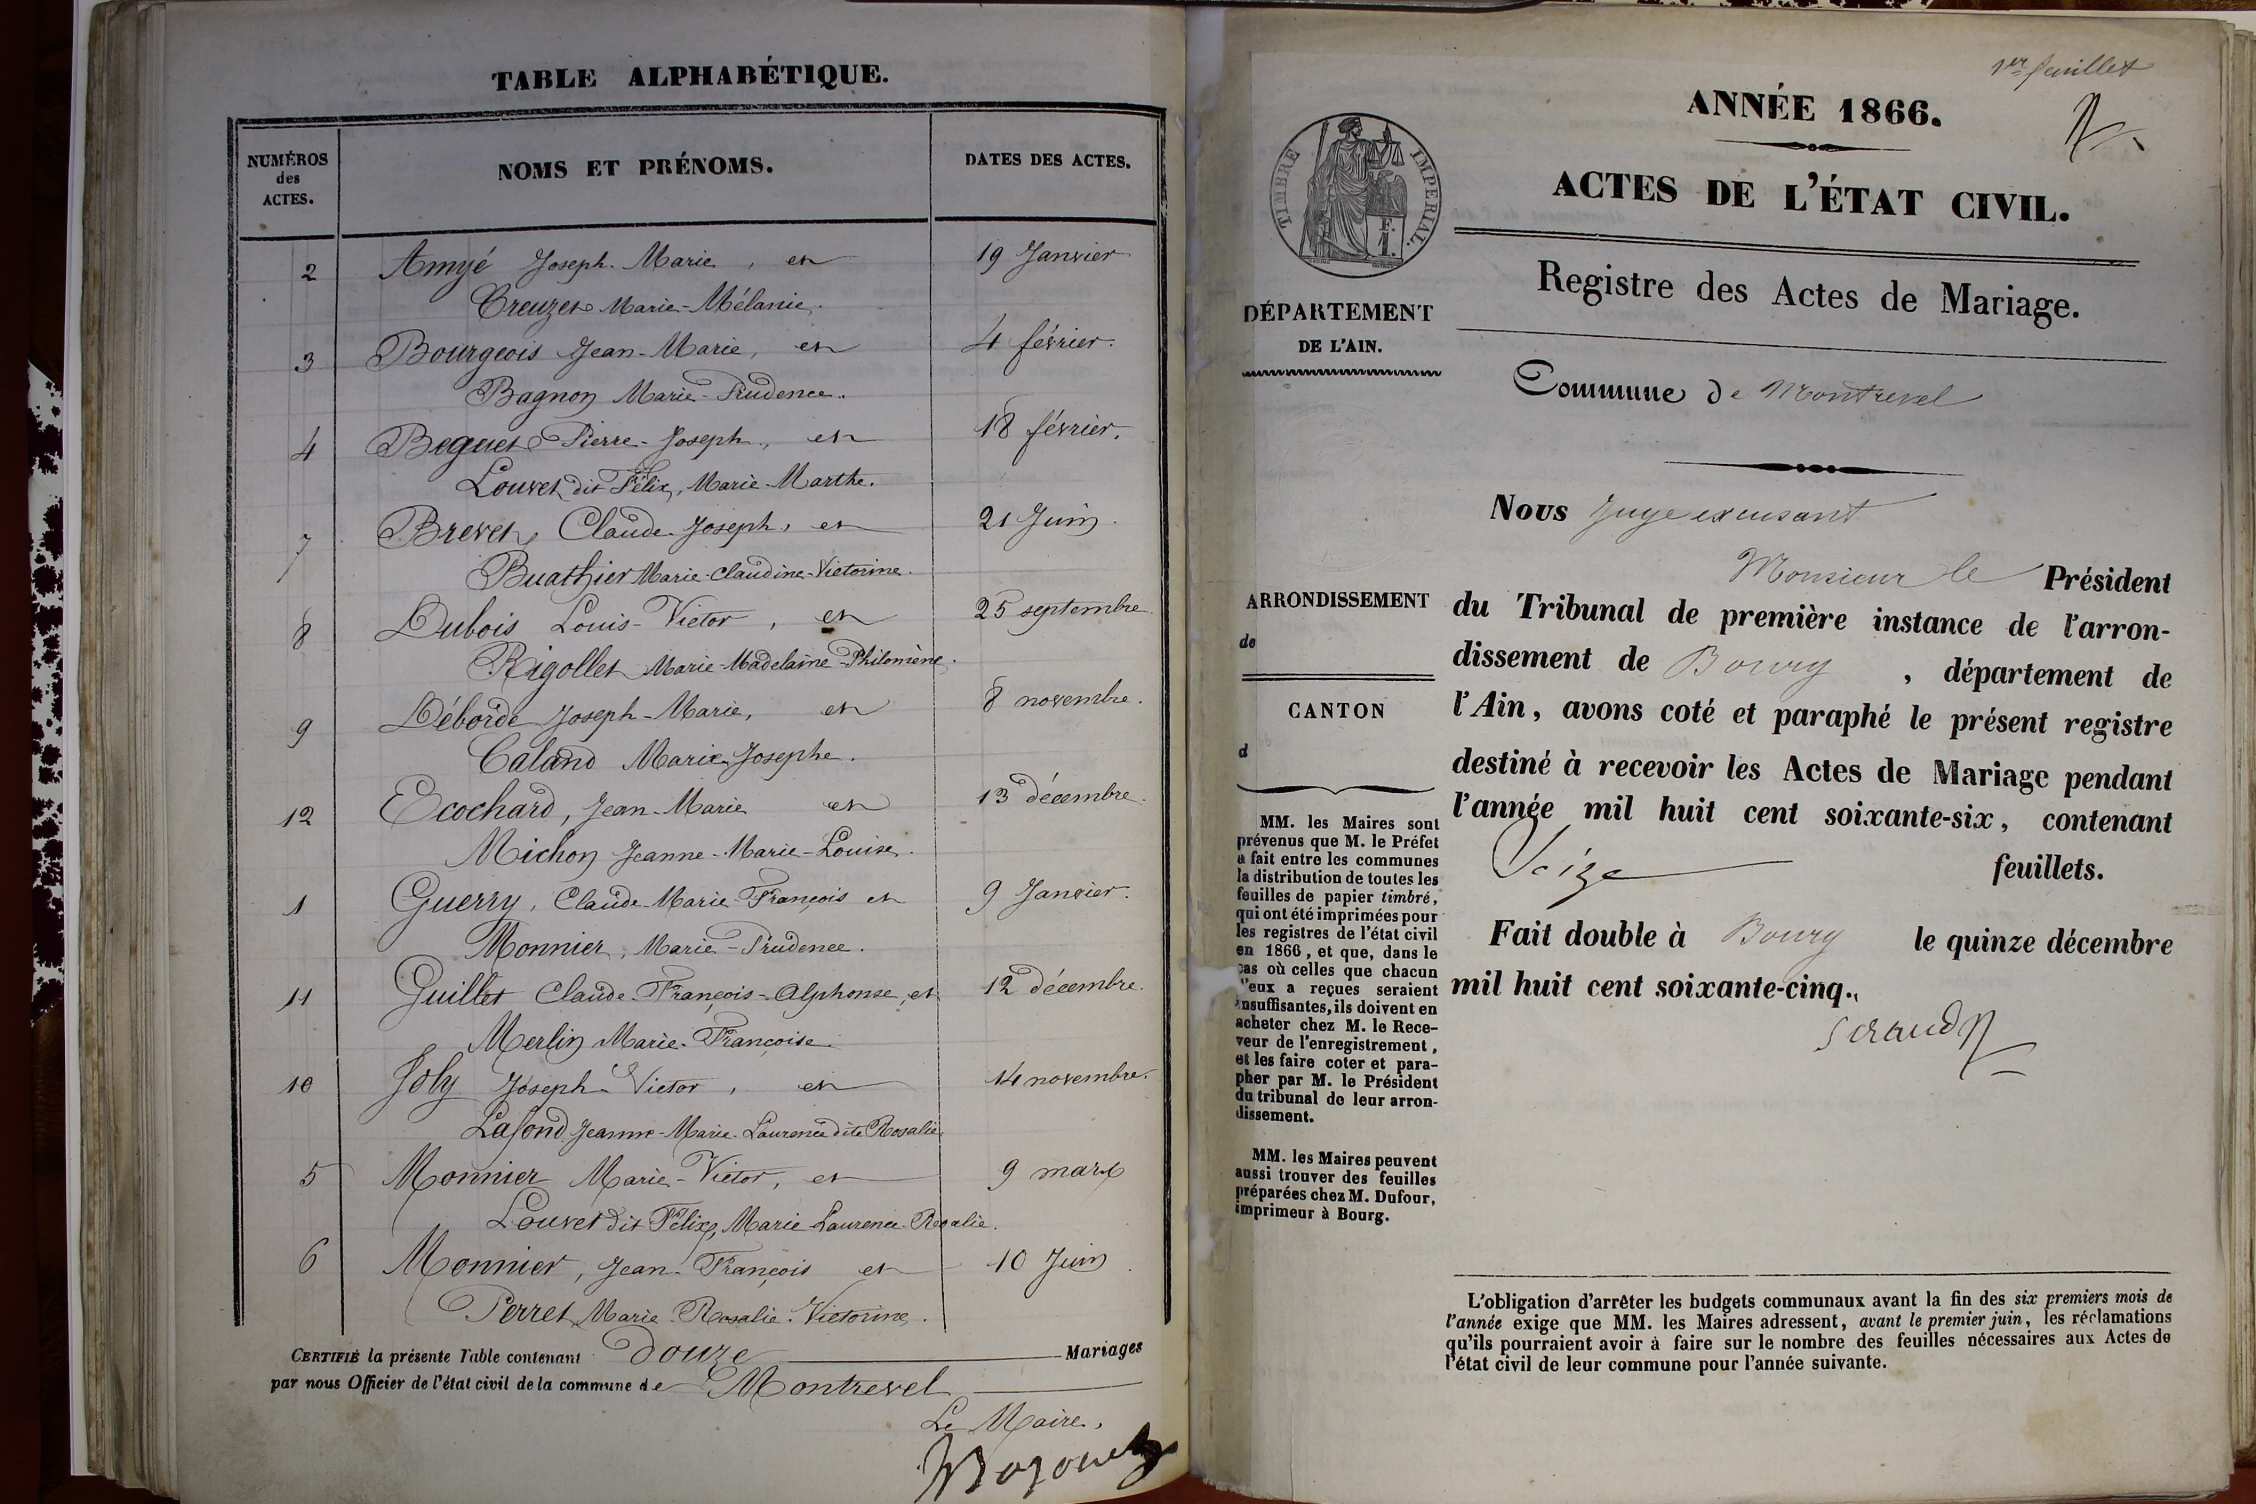 TABLE ALPHABÉTIQUE.
NUMÉROS
des
ACTES.
NOMS ET PRÉNOMS.
DATES DES ACTES.
2 Amyé Joseph-Marie, et 19 Janvier
Creuzet Marie-Mélanie.
3 Bourgeois Jean-Marie, et 4 février.
Bagnon Marie-Prudence.
4 Beguet Pierre-Joseph, et 18 février.
Louvet dit Félix, Marie-Marthe.
7 Brevet, Claude-Joseph, et 21 Juin.
Buathier Marie-Claudine-Victorine.
8 Dubois Louis-Victor, et 25 septembre.
Rigollet Marie-Madelaine-Philomène.
9 Déborde Joseph-Marie, et 8 novembre.
Caland Marie-Josephe.
12 Ecochard, Jean-Marie et 13 décembre.
Michon Jeanne-Marie-Louise.
1 Guerry, Claude-Marie-François et 9 Janvier.
Monnier, Marie-Prudence.
11 Guillet Claude-François-Alphonse, et 12 décembre.
Merlin Marie-Françoise.
10 Joly Joseph-Victor, et 14 novembre.
Lafond Jeanne-Marie-Laurence dite Rosalie
5 Monnier Marie-Victor, et 9 mars
Louvet dit Félix, Marie-Laurence-Rosalie.
6 Monnier, Jean-François et 10 Juin
Perret Marie-Rosalie-Victorine.
CERTIFIÉ la présente Table contenant douze Mariages
par nous Officier de l'état civil de la commune de Montrevel
Le Maire,
1er feuillet
ANNÉE 1866.
ACTES DE L'ÉTAT CIVIL.
TIMBRE IMPERIAL.
F.
1.
Registre des Actes de Mariage.
DÉPARTEMENT
DE L'AIN.
Commune de Montrevel
Nous Juge excusant
Monsieur le Président
du Tribunal de première instance de l'arron-
dissement de Bourg, département de
l'Ain, avons coté et paraphé le présent registre
destiné à recevoir les Actes de Mariage pendant
l'année mil huit cent soixante-six, contenant
Seize feuillets.
Fait double à Bourg le quinze décembre
mil huit cent soixante-cinq.
ARRONDISSEMENT
de
CANTON
d
MM. les Maires sont
prévenus que M. le Préfet
a fait entre les communes
la distribution de toutes les
feuilles de papier timbré,
qui ont été imprimées pour
les registres de l'état civil
en 1866, et que, dans le
cas où celles que chacun
d'eux a reçues seraient
insuffisantes, ils doivent en
acheter chez M. le Rece-
veur de l'enregistrement,
et les faire coter et para-
pher par M. le Président
du tribunal de leur arron-
dissement.
MM. les Maires peuvent
aussi trouver des feuilles
préparées chez M. Dufour,
imprimeur à Bourg.
L'obligation d'arrêter les budgets communaux avant la fin des six premiers mois de
l'année exige que MM. les Maires adressent, avant le premier juin, les réclamations
qu'ils pourraient avoir à faire sur le nombre des feuilles nécessaires aux Actes de
l'état civil de leur commune pour l'année suivante.